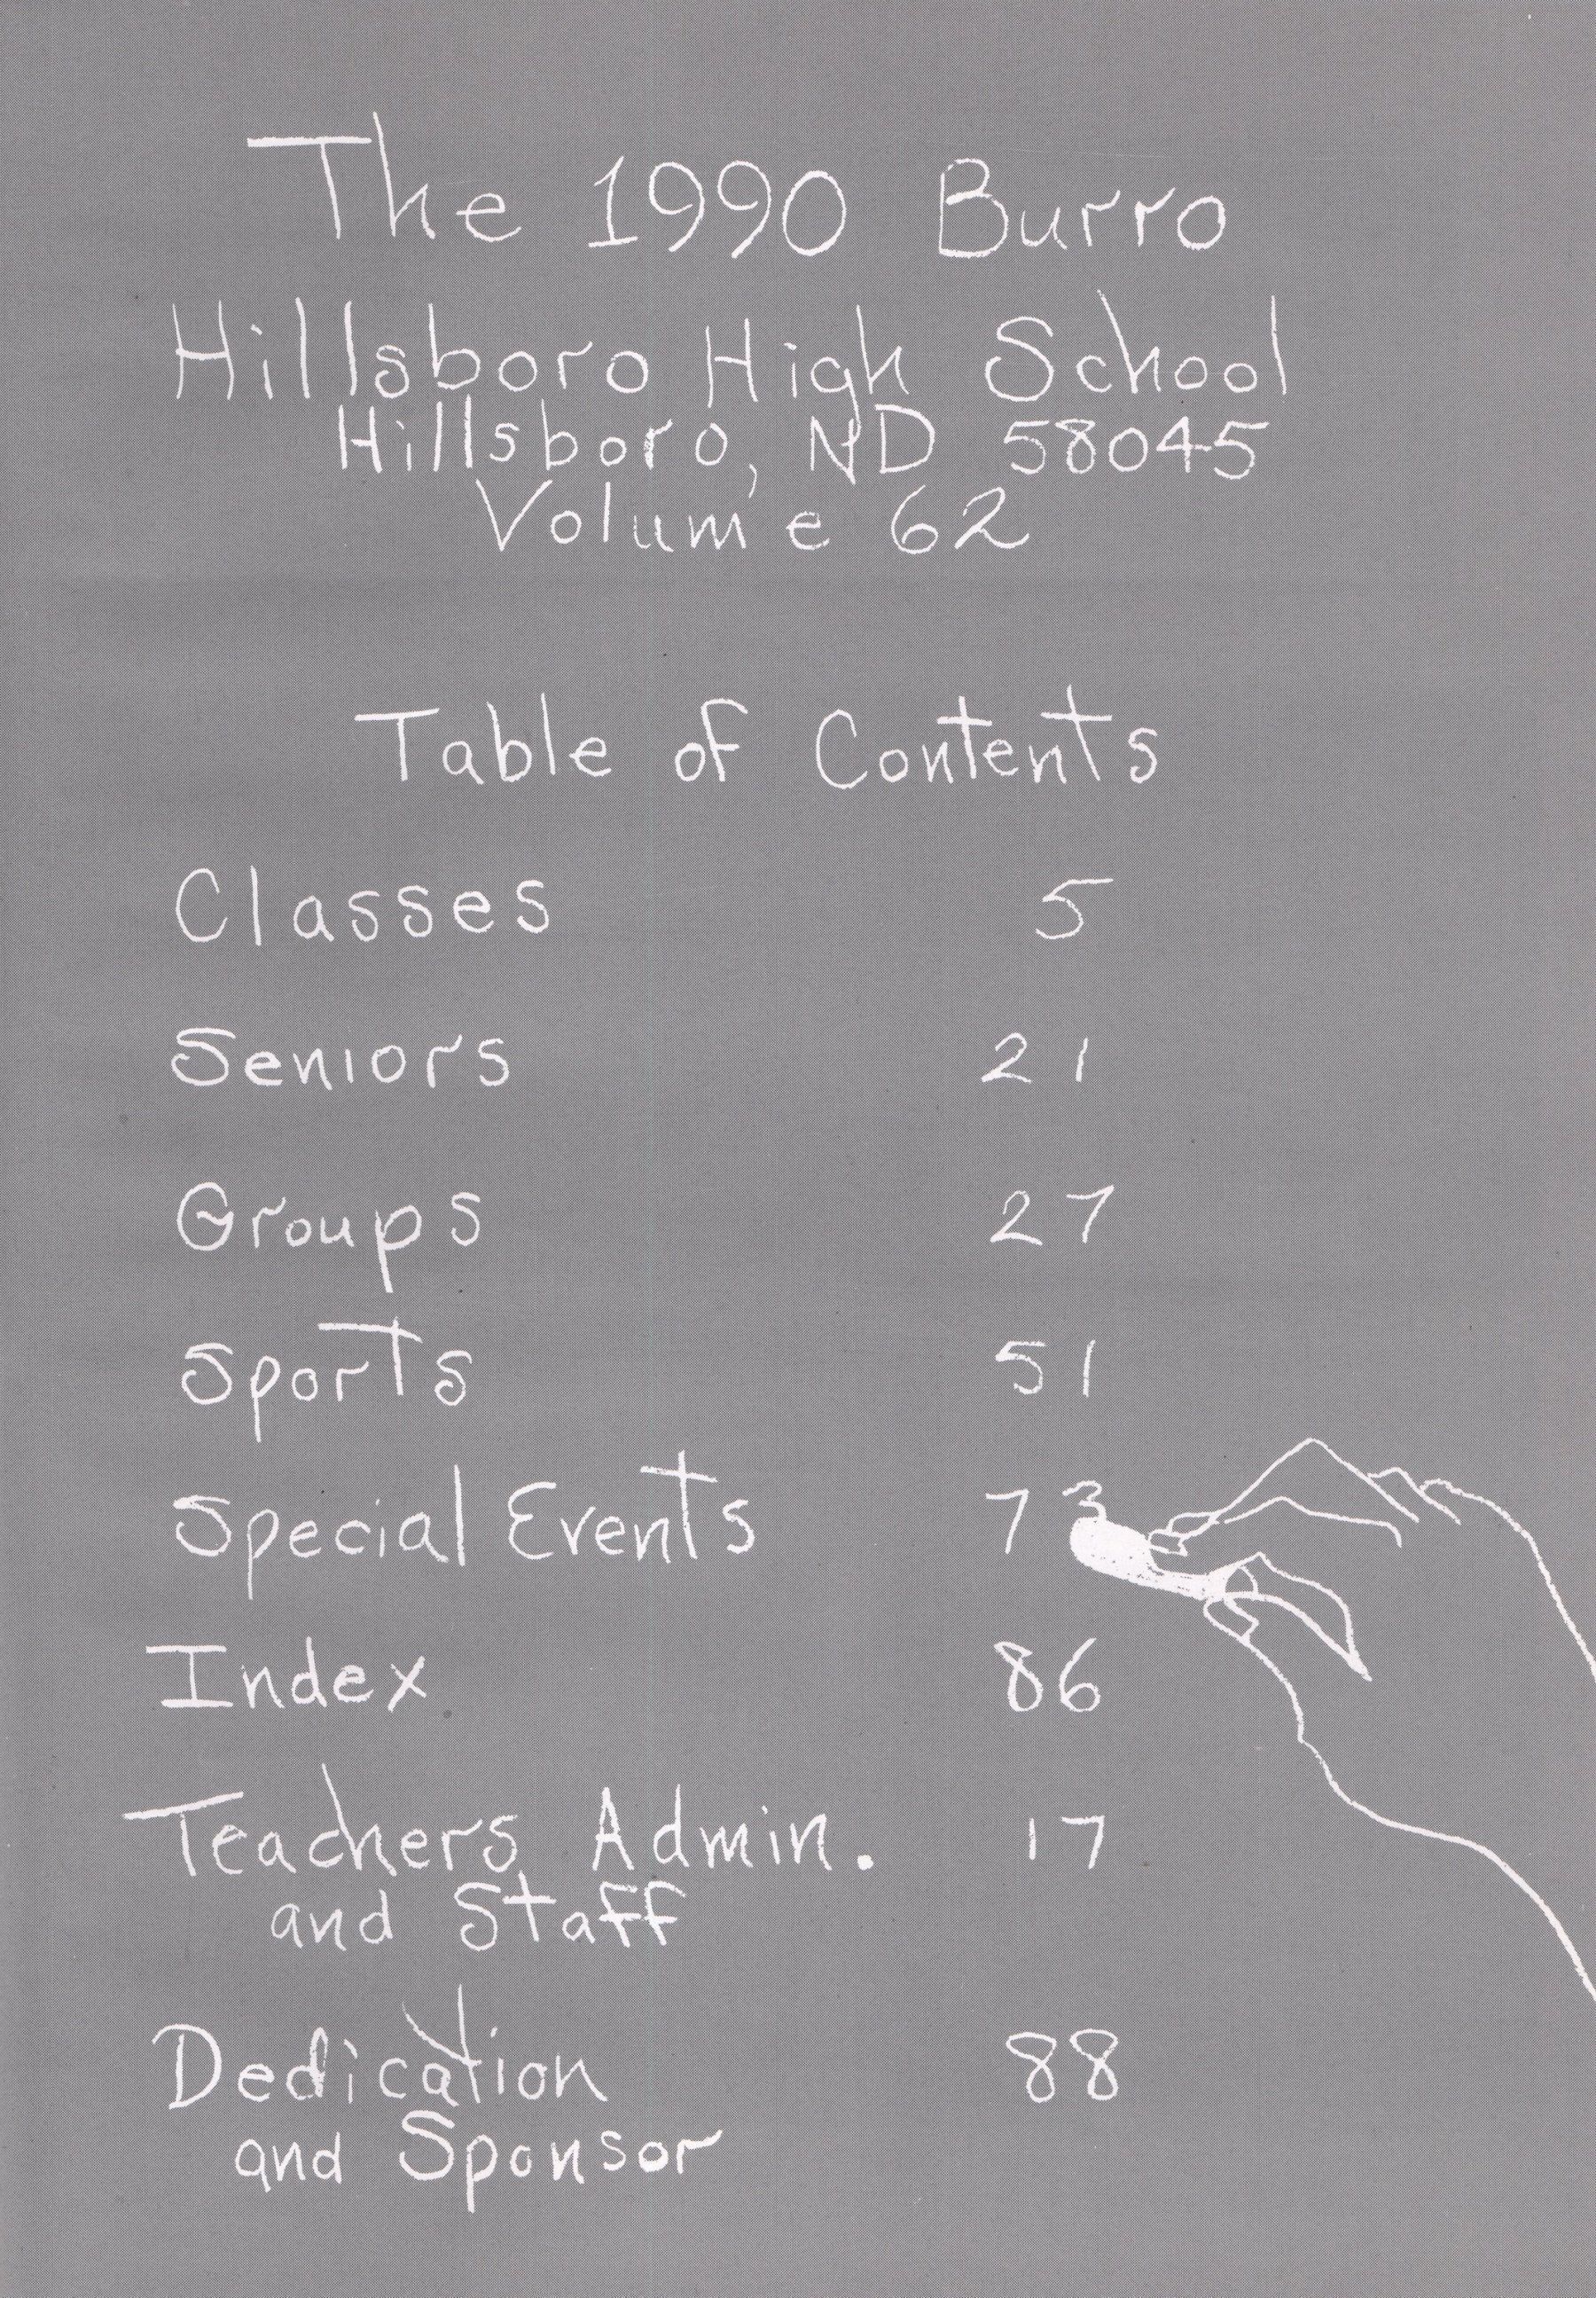 The 1990 Burro
Hillsboro High School
Hillsboro, ND 58045
Volume 62
Table of Contents
Classes 5
Seniors 21
Groups 27
Sports 51
Special Events 73
Index 86
Teachers, Admin. 17
and Staff
Dedication 88
and Sponsor